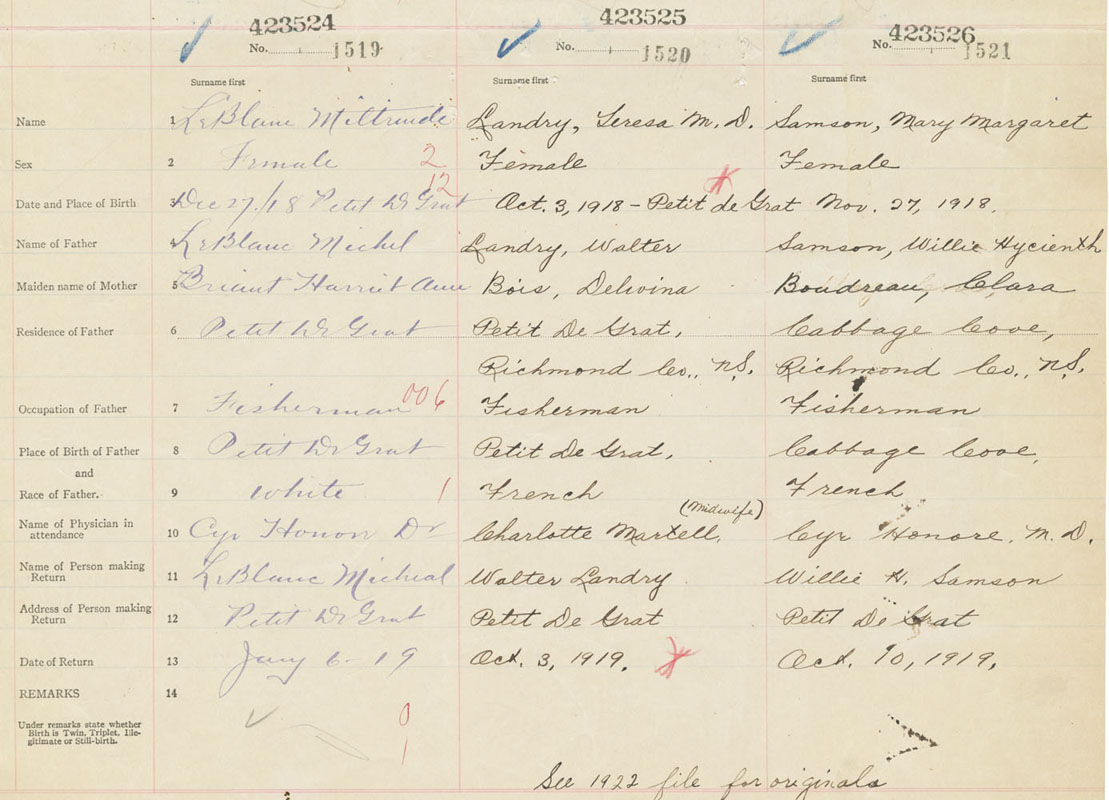 423524 423525 423526
No. 1519 No. 1520 No. 1521
Surname first Surname first Surname first
Name 1 LeBlanc Landry, Teresa M. D. Samson, Mary Margaret
Sex 2 Female 2 Female Female
12
Date and Place of Birth 3 Dec 27/18 Petit De Grat Oct. 3, 1918 - Petit de Grat Nov. 27, 1918.
Name of Father 4 LeBlanc Michel Landry, Walter Samson, Willie Hycienth
Maiden name of Mother 5 Briant Harriet Ann Bois, Delivina Boudreau, Clara
Residence of Father 6 Petit De Grat Petit De Grat, Cabbage Cove,
Richmond Co., N.S. Richmond Co., N.S.
Occupation of Father 7 Fisherman 006 Fisherman Fisherman
Place of Birth of Father 8 Petit De Grat Petit De Grat, Cabbage Cove,
and
Race of Father. 9 White 1 French French
(Midwife)
Name of Physician in
attendance 10 Cyr Honor Dr Charlotte Martell, Cyr Honore, M. D.
Name of Person making
Return 11 LeBlanc Micheal Walter Landry Willie H. Samson
Address of Person making
Return 12 Petit De Grat Petit De Grat Petit De Grat
Date of Return 13 Jany 6-19 Oct. 3, 1919. Oct. 10, 1919.
REMARKS 14
Under remarks state whether
Birth is Twin, Triplet, Ille-
gitimate or Still-birth.
0
1
See 1922 file for originals